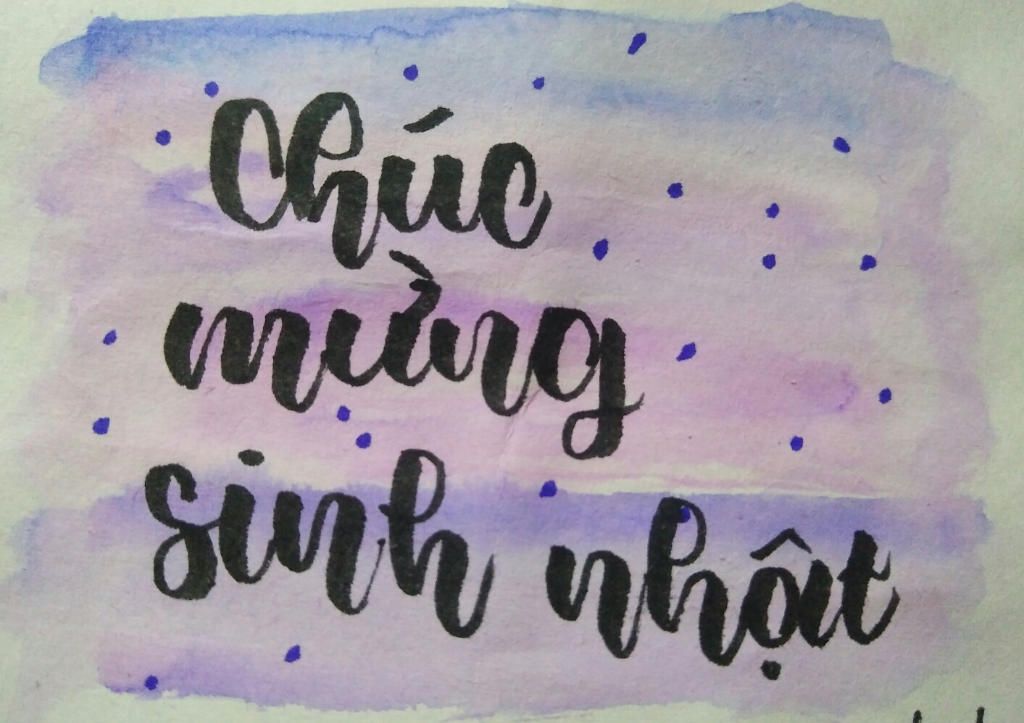 Chúc
mừng
sinh nhật